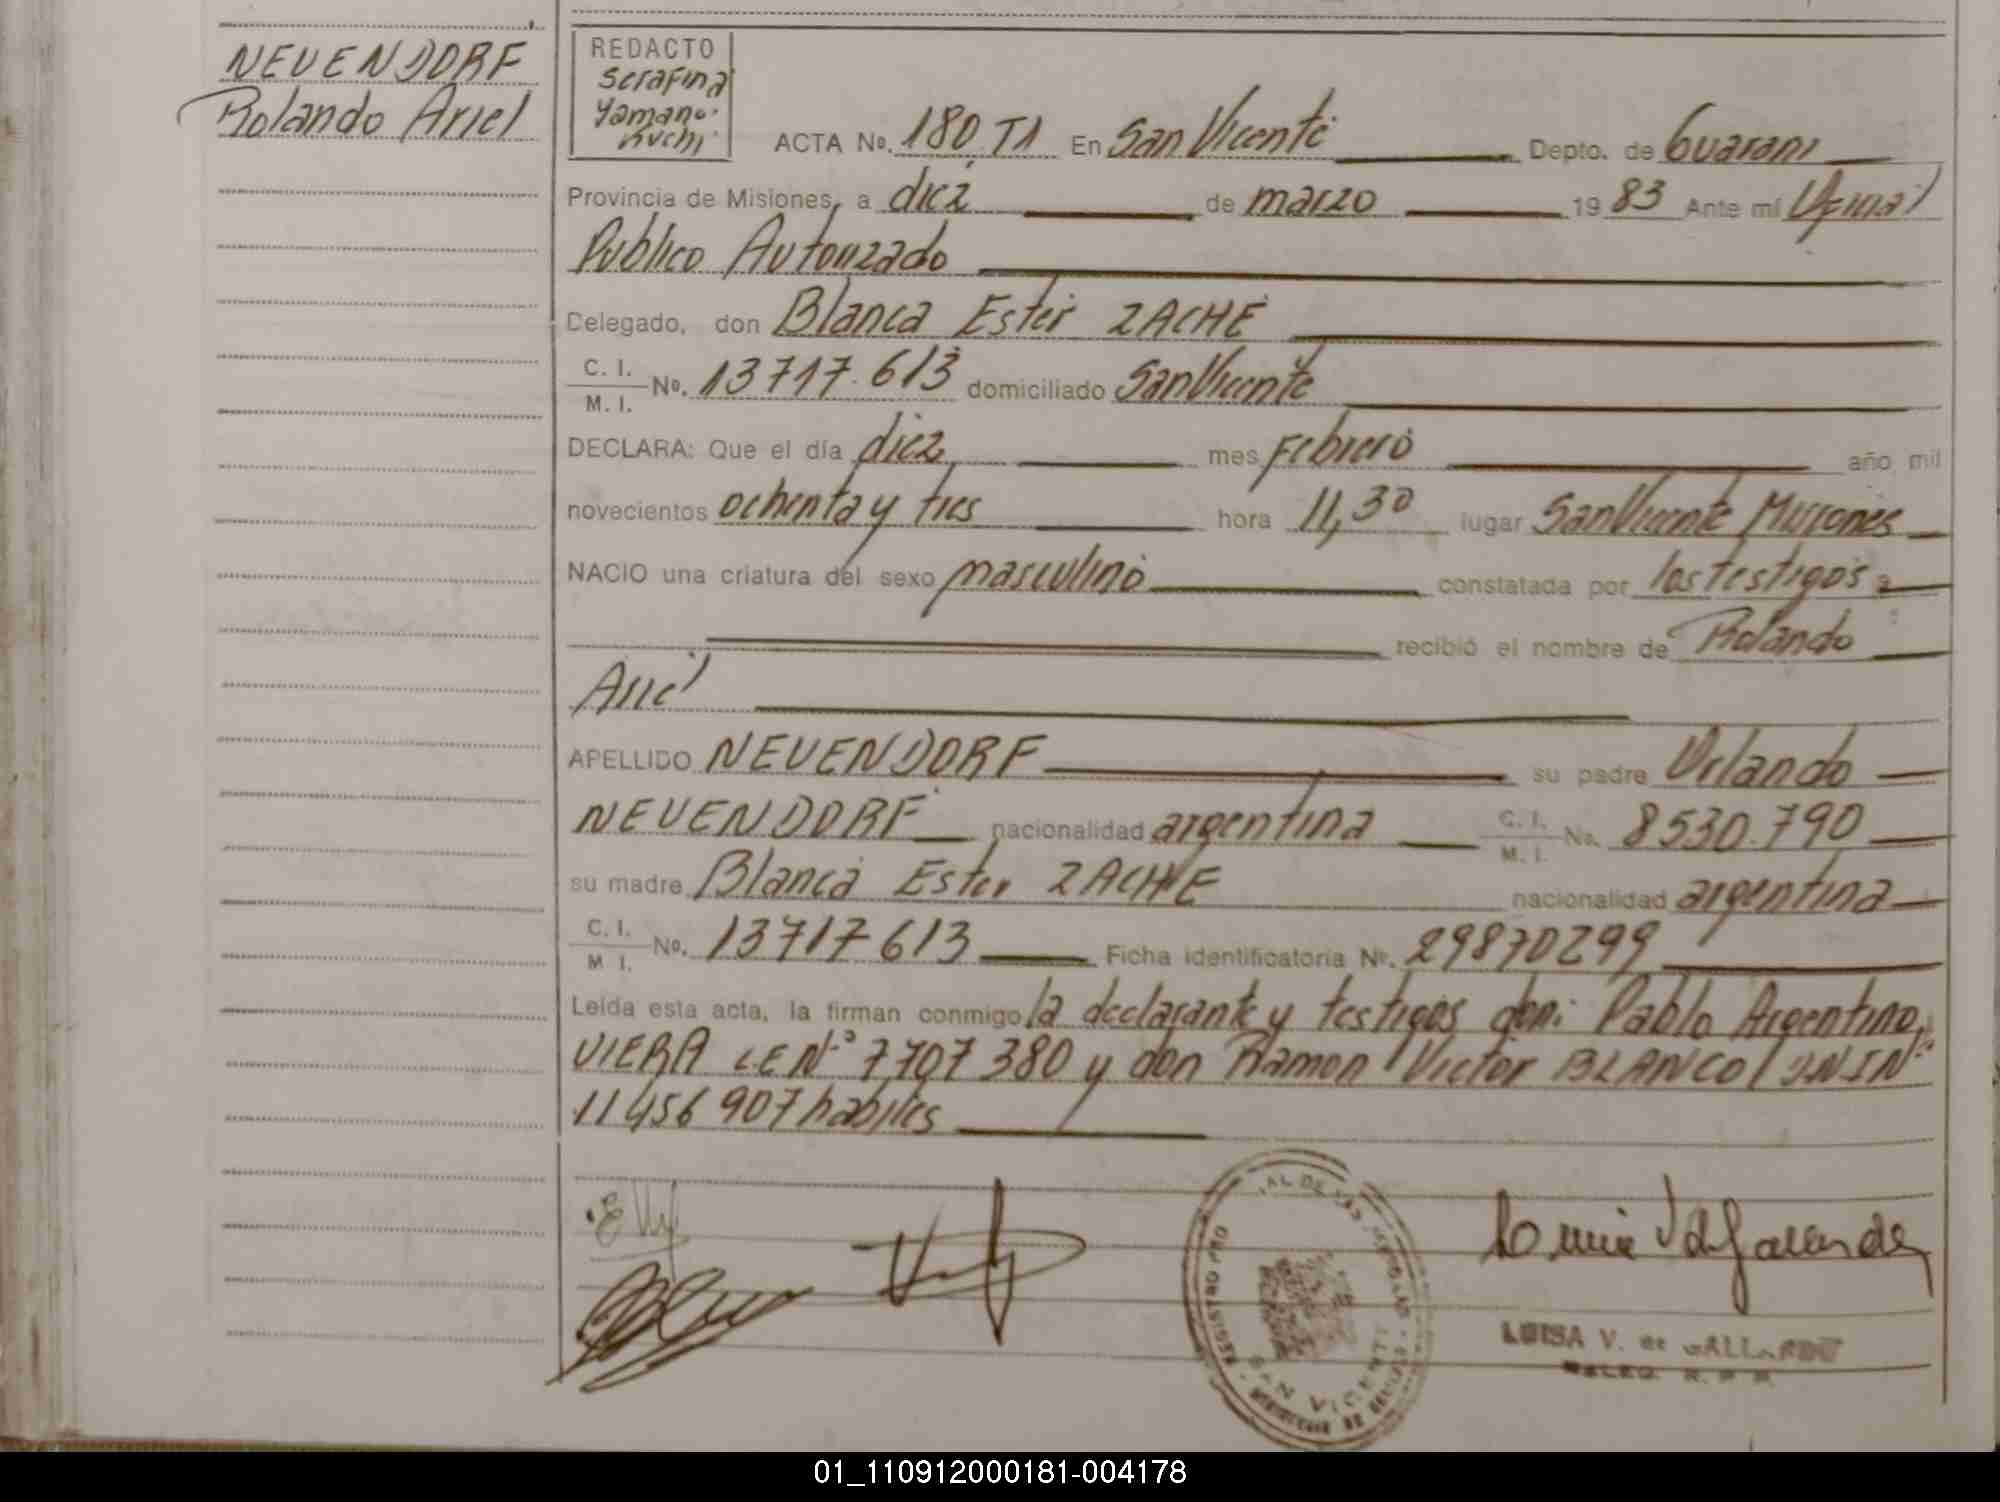 NEUENDORF
Rolando Ariel
REDACTO
Serafina
Yamano-
kuchi
ACTA No. 180 T1 En San Vicente Depto. de Guarani
Provincia de Misiones, a diez de marzo 19 83 Ante mí Oficial
Publico Autorizado
Delegado, don Blanca Ester ZACHE
C. I.
M. I. No. 13717.613 domiciliado San Vicente
DECLARA: Que el día diez mes Febrero año mil
novecientos ochenta y tres hora 11,30 lugar San Vicente Misiones
NACIO una criatura del sexo masculino constatada por los testigos
recibió el nombre de Rolando
Ariel
APELLIDO NEUENDORF su padre Orlando
NEUENDORF nacionalidad argentina C. I.
M. I. No. 8530.790
su madre Blanca Ester ZACHE nacionalidad argentina
C. I.
M I. No. 13717613 Ficha identificatoria Nº. 29870299
Leída esta acta, la firman conmigo la declarante y testigos don: Pablo Argentino
VIERA L.E Nº 7707380 y don Ramon Victor BLANCO DNI Nº
11456907 habiles
REGISTRO PRO
SAN VICENTE
LUISA V. de GALLARDO
01_110912000181-004178